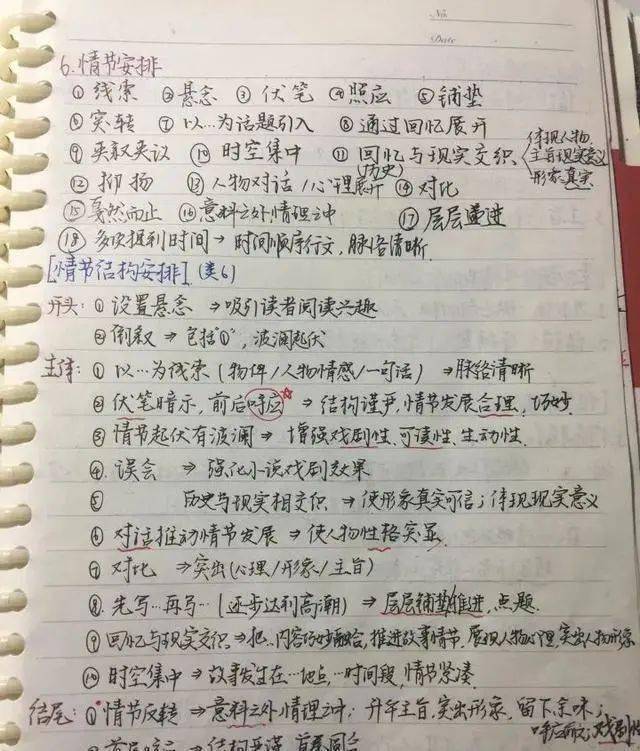 No.
Date
6.情节安排
①线索 ②悬念 ③伏笔 ④照应 ⑤铺垫
⑥突转 ⑦以…为话题引入 ⑧通过回忆展开
⑨夹叙夹议 ⑩时空集中 ⑪回忆与现实交织(历史) 体现人物、
主旨现实意义
形象真实
⑫抑扬 ⑬人物对话/心理展开 ⑭对比
⑮戛然而止 ⑯意料之外情理之中 ⑰层层递进
⑱多次提到时间→时间顺序行文,脉络清晰.
[情节结构安排](类6)
开头:①设置悬念⇒吸引读者阅读兴趣
②倒叙⇒包括"①",波澜起伏
主体:①以…为线索(物件/人物情感/一句话)⇒脉络清晰
②伏笔暗示,前后呼应☆⇒结构谨严,情节发展合理,巧妙.
③情节起伏有波澜⇒增强戏剧性.可读性.生动性.
④误会⇒强化小说戏剧效果
⑤历史与现实相交织⇒使形象真实可信;体现现实意义
⑥对话推动情节发展⇒使人物性格突显.
⑦对比⇒突出(心理/形象/主旨)
⑧先写…再写…(逐步达到高潮)⇒层层铺垫推进,点题.
⑨回忆与现实交织⇒把..内容巧妙融合,推进故事情节,展现人物心理,突出人物形象
⑩时空集中⇒故事发生在…地点,…时间段,情节紧凑.
结尾:①情节反转⇒意料之外情理之中;升华主旨,突出形象,留下余味;
呼应前文;戏剧性
②首尾呼应⇒结构严谨,首尾圆合